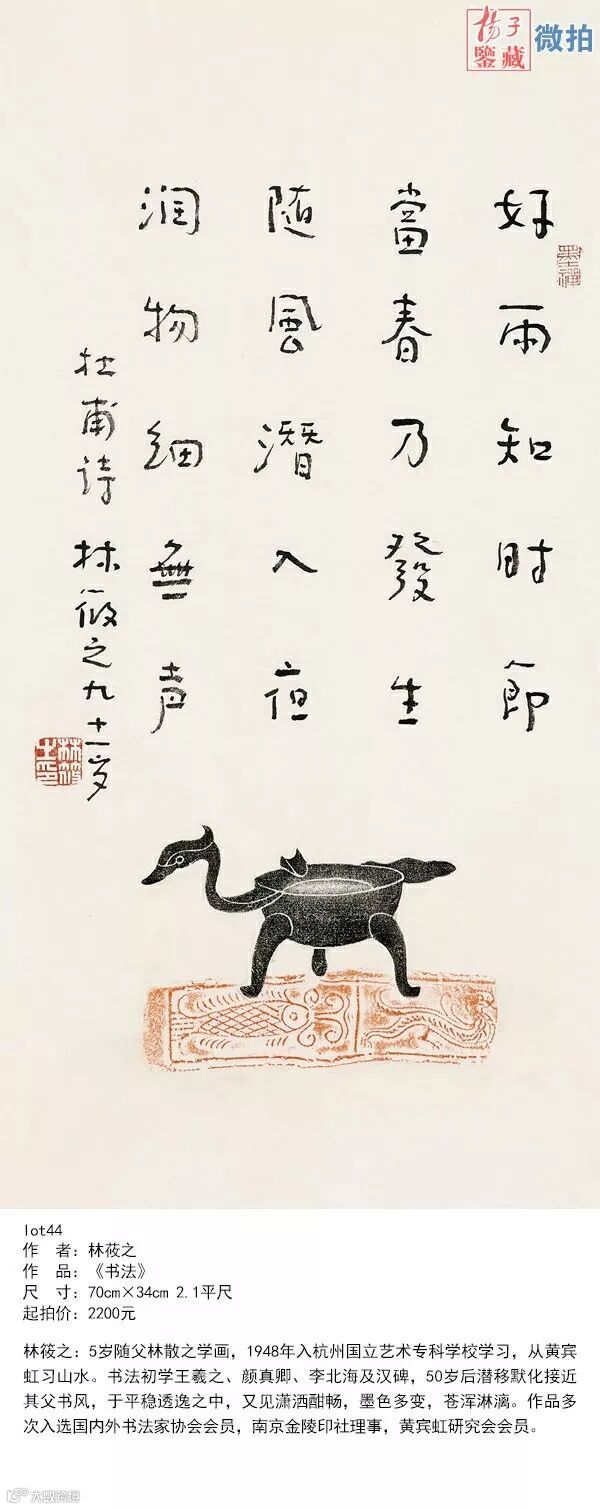 揚子
鑒藏
微拍
好雨知时節
當春乃發生
随風潛入夜
润物细無声
杜甫诗 林筱之九十一岁
墨禪
林筱
之印
lot44
作 者：林莜之
作 品：《书法》
尺 寸：70cm×34cm 2.1平尺
起拍价：2200元
林筱之：5岁随父林散之学画，1948年入杭州国立艺术专科学校学习，从黄宾
虹习山水。书法初学王羲之、颜真卿、李北海及汉碑，50岁后潜移默化接近
其父书风，于平稳透逸之中，又见潇洒酣畅，墨色多变，苍浑淋漓。作品多
次入选国内外书法家协会会员，南京金陵印社理事，黄宾虹研究会会员。
大数跨境